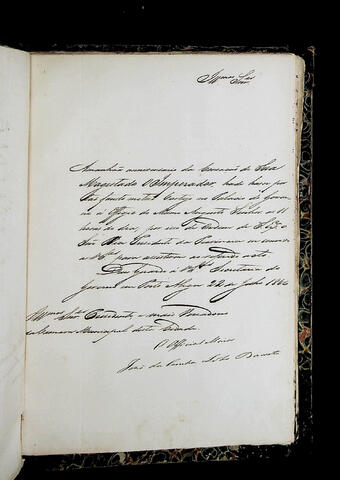 Illmos Snrs
Amanhã anniversario da Coroação de Sua
Magestade O Imperador, hade haver por
tão fausto motivo Cortejo no Palacio do Gover
no a Effigie do Mesmo Augusto Senhor as 11
horas do dia, por isso de Ordem de S. Exª. o
Snr Presidente da Provincia convido
a VSªs para assistirem ao referido acto.
Deos Guarde a VSªs Secretaria do
Governo em Porto Alegre 22 de Julho 1846
Illmos Snrs Presidente e mais Vereadores
da Camara Municipal desta Cidade.
O Official Maior
João da Cunha Lobo Barreto